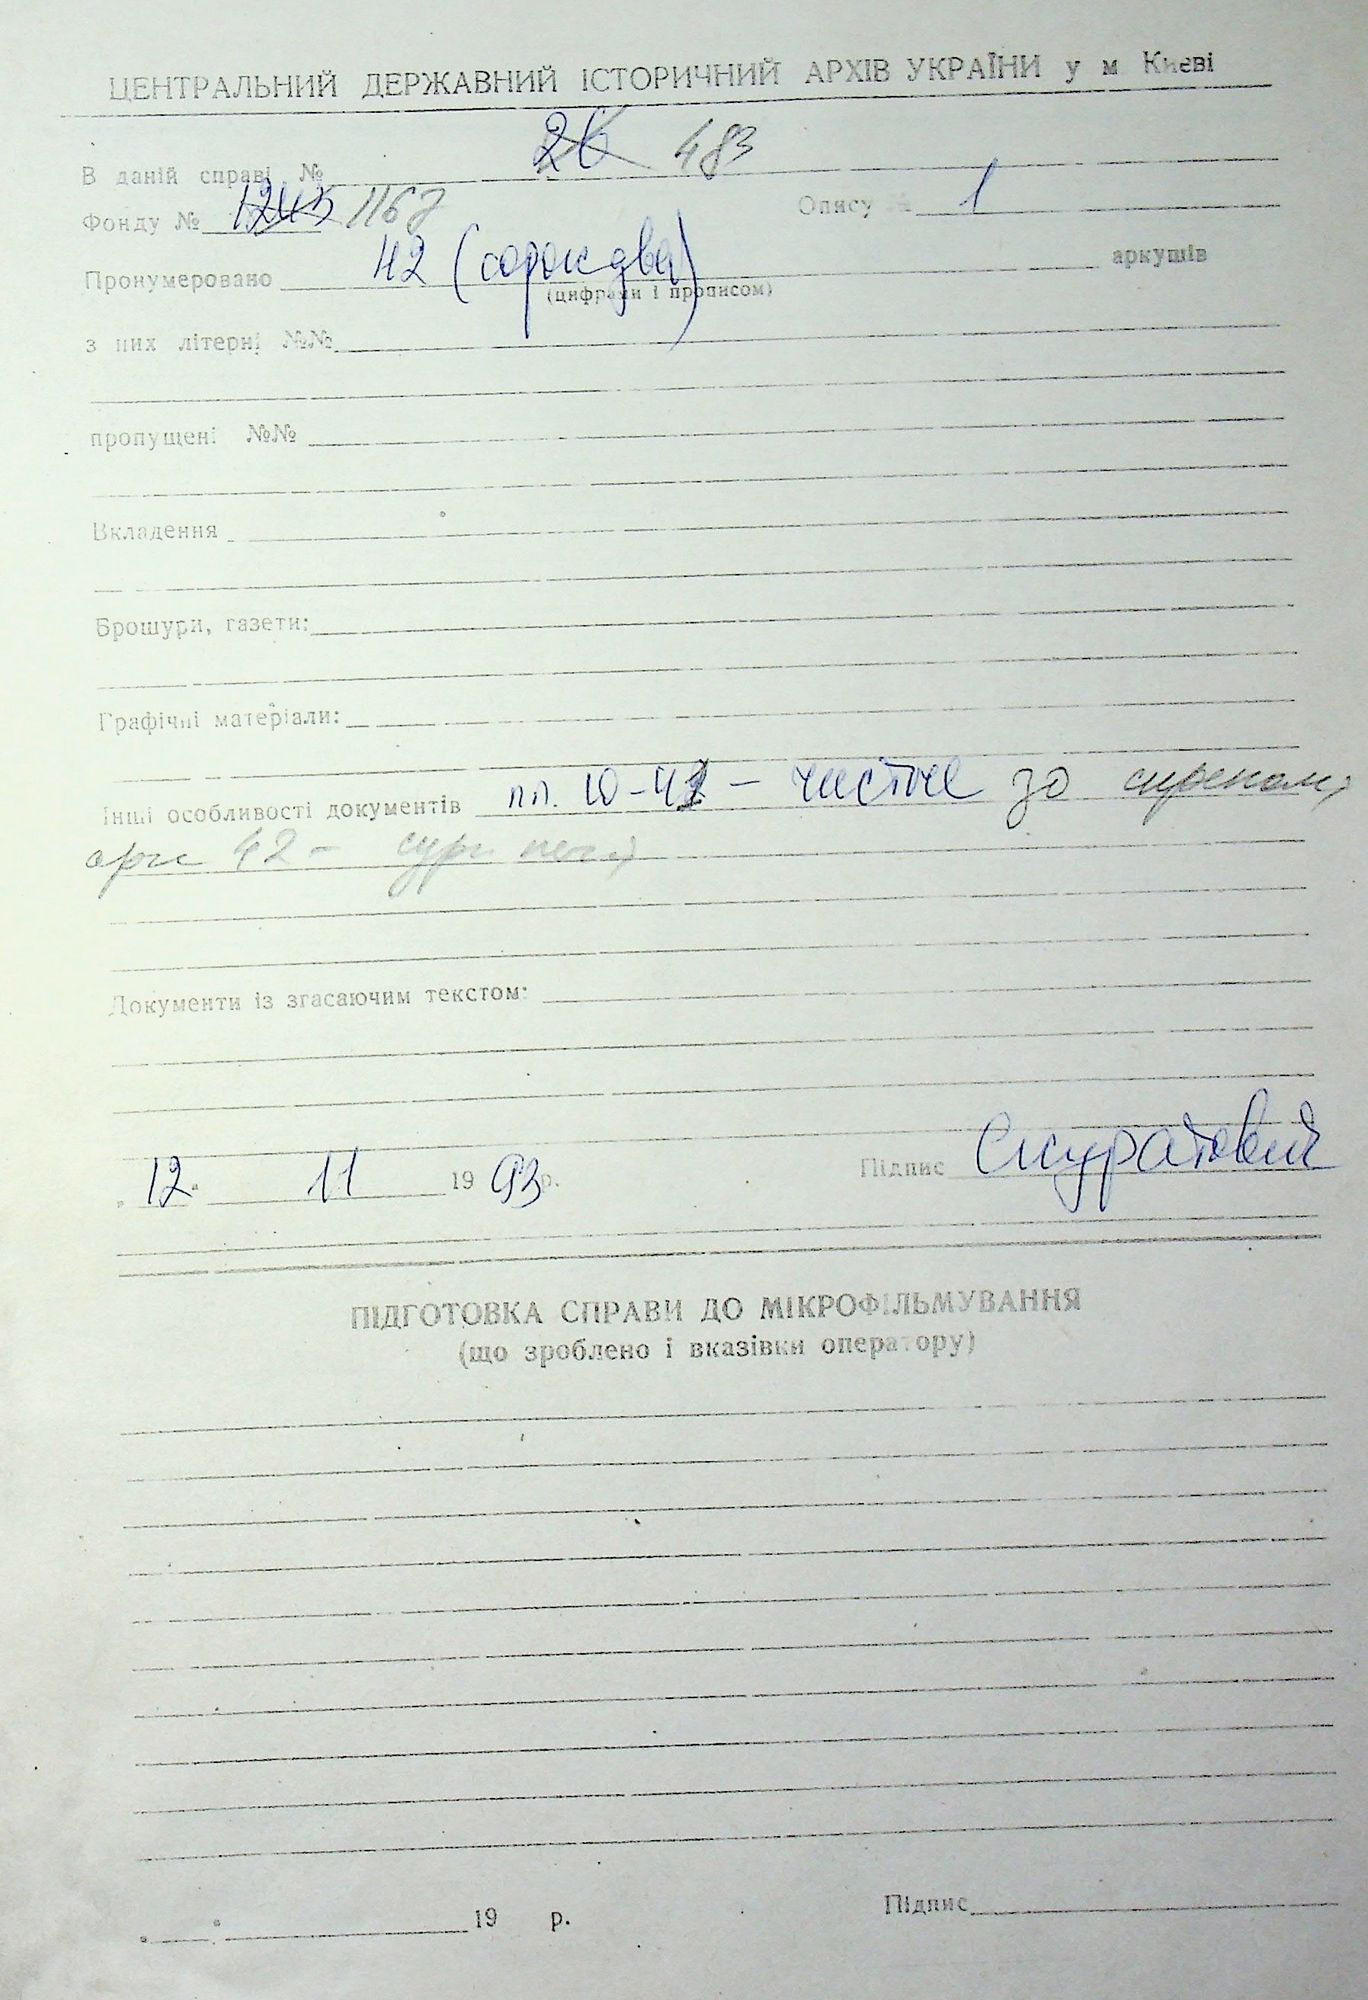 ЦЕНТРАЛЬНИЙ ДЕРЖАВНИЙ ІСТОРИЧНИЙ АРХІВ УКРАЇНИ у м Києві
В даній справі № 26 483
Фонду № 1243 1167 Опису № 1
Пронумеровано 42 (сорок два) аркушів
(цифрами і прописом)
з них літерні №№
пропущені №№
Вкладення
Брошури, газети:
Графічні матеріали:
Інші особливості документів пп. 10-41 – чисті
арк 42 –
Документи із згасаючим текстом:
„12" 11 1993 р. Підпис
ПІДГОТОВКА СПРАВИ ДО МІКРОФІЛЬМУВАННЯ
(що зроблено і вказівки оператору)
19 р. Підпис